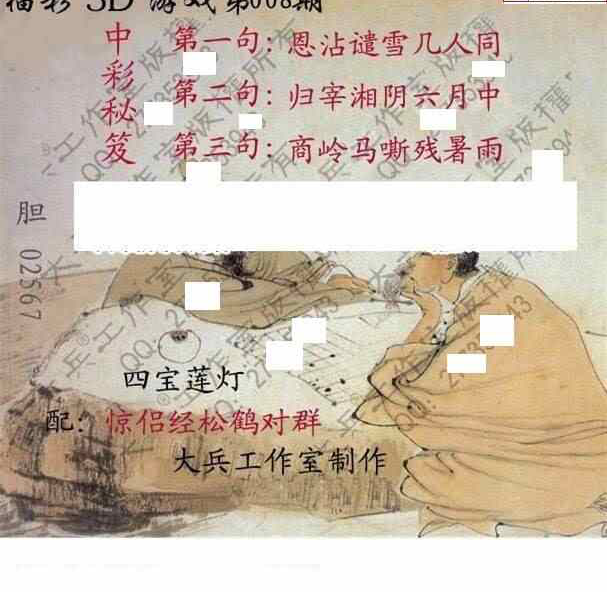 福彩 3D 游戏第008期
中彩秘笈
第一句：恩沾谴雪几人同
第二句：归宰湘阴六月中
第三句：商岭马嘶残暑雨
胆 02567
四宝莲灯
配：惊侣经松鹤对群
大兵工作室制作